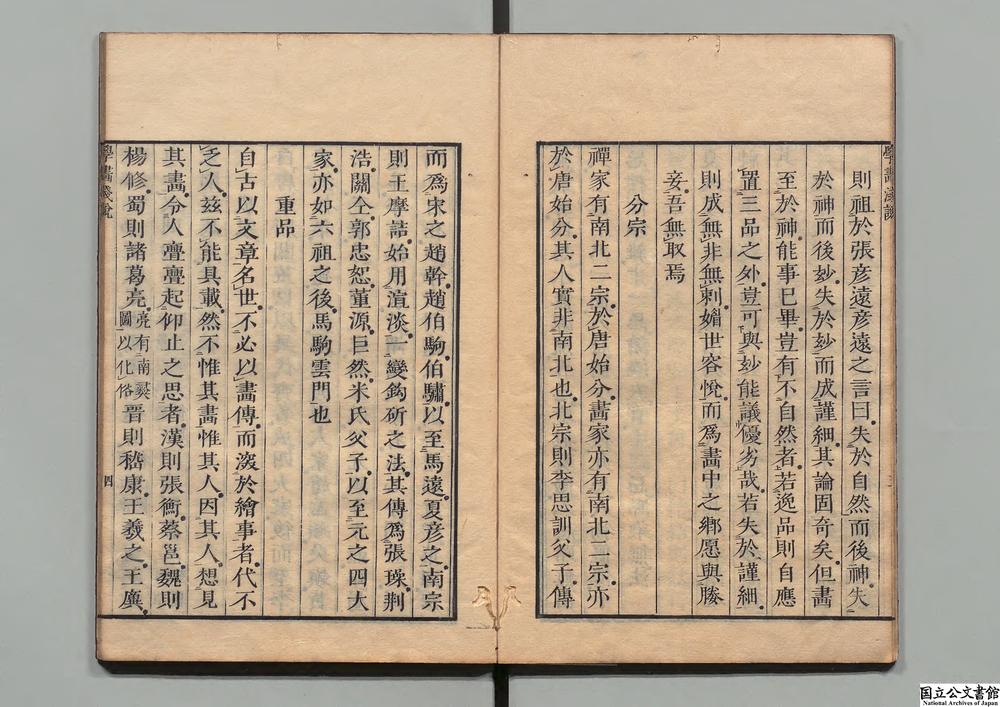 則祖於張彥遠彥遠之言曰失於自然而後神失
於神而後妙失於妙而成謹細其論固奇矣但畫
至於神能事已畢豈有不自然者若逸品則自應
置三品之外豈可與妙能議優劣哉若失於謹細
則成無非無刺媚世容悅而爲畫中之鄉愿與媵
妾吾無取焉
分宗
禪家有南北二宗於唐始分畫家亦有南北二宗亦
於唐始分其人實非南北也北宗則李思訓父子傳
學畫淺說
三
而爲宋之趙幹趙伯駒伯驌以至馬遠夏彥之南宗
則王摩詰始用渲淡一變鈎斫之法其傳爲張璪荆
浩關仝郭忠恕董源巨然米氏父子以至元之四大
家亦如六祖之後馬駒雲門也
重品
自古以文章名世不必以畫傳而深於繪事者代不
乏人茲不能具載然不惟其畫惟其人因其人想見
其畫令人亹亹起仰止之思者漢則張衡蔡邕魏則
楊修蜀則諸葛亮亮有南夷圖以化俗晉則嵇康王羲之王廙
學畫淺說
四
国立公文書館
National Archives of Japan